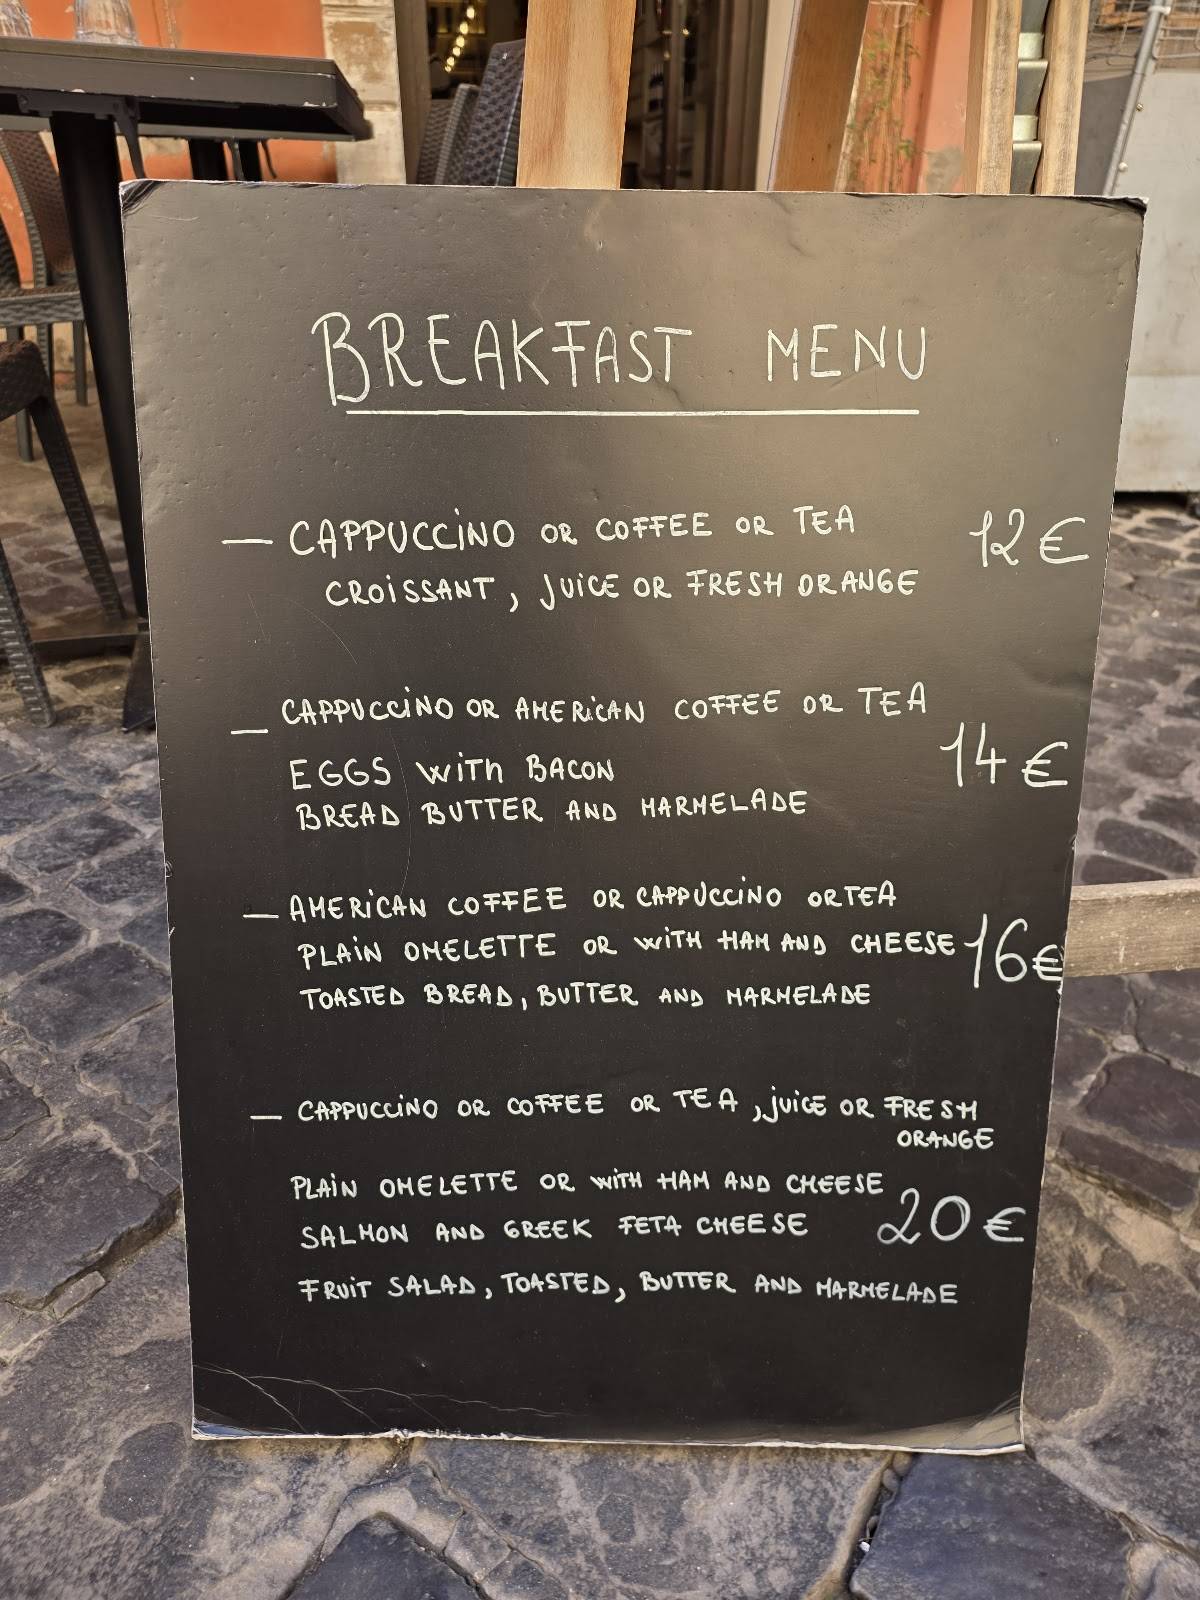 BREAKFAST MENU
— CAPPUCCINO OR COFFEE OR TEA
CROISSANT, JUICE OR FRESH ORANGE
12€
— CAPPUCCINO OR AMERICAN COFFEE OR TEA
EGGS WITH BACON
14€
BREAD BUTTER AND MARMELADE
— AMERICAN COFFEE OR CAPPUCCINO OR TEA
PLAIN OMELETTE OR WITH HAM AND CHEESE 16€
TOASTED BREAD, BUTTER AND MARMELADE
— CAPPUCCINO OR COFFEE OR TEA, JUICE OR FRESH
ORANGE
PLAIN OMELETTE OR WITH HAM AND CHEESE
SALMON AND GREEK FETA CHEESE 20€
FRUIT SALAD, TOASTED, BUTTER AND MARMELADE